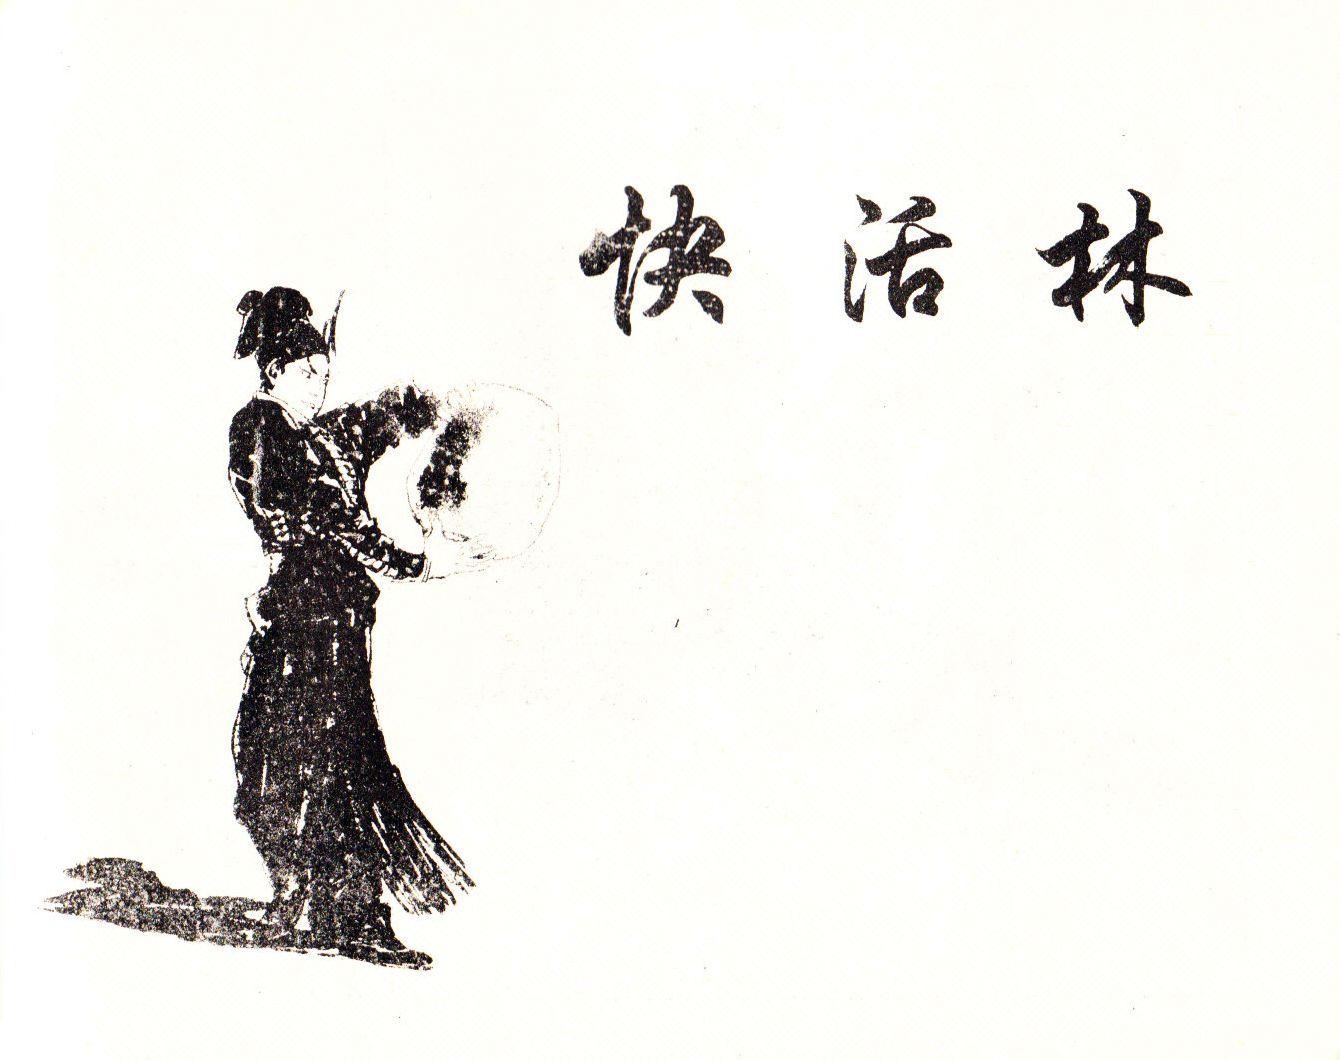 快活林